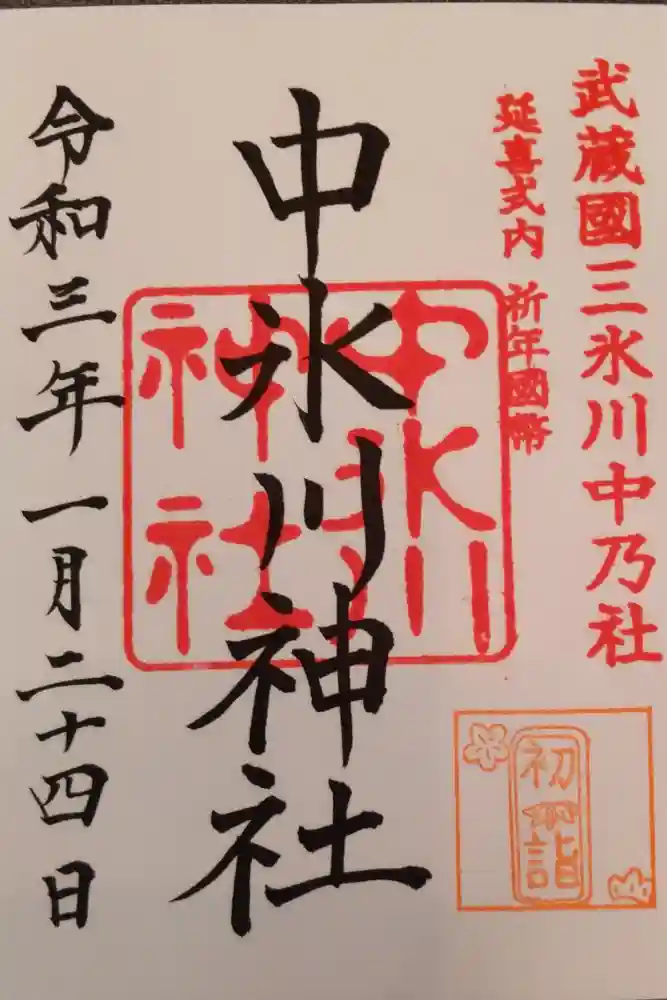 武蔵國三氷川中乃社
延喜式内 祈年國幣
中氷川神社
中氷川
神社
令和三年一月二十四日
初詣